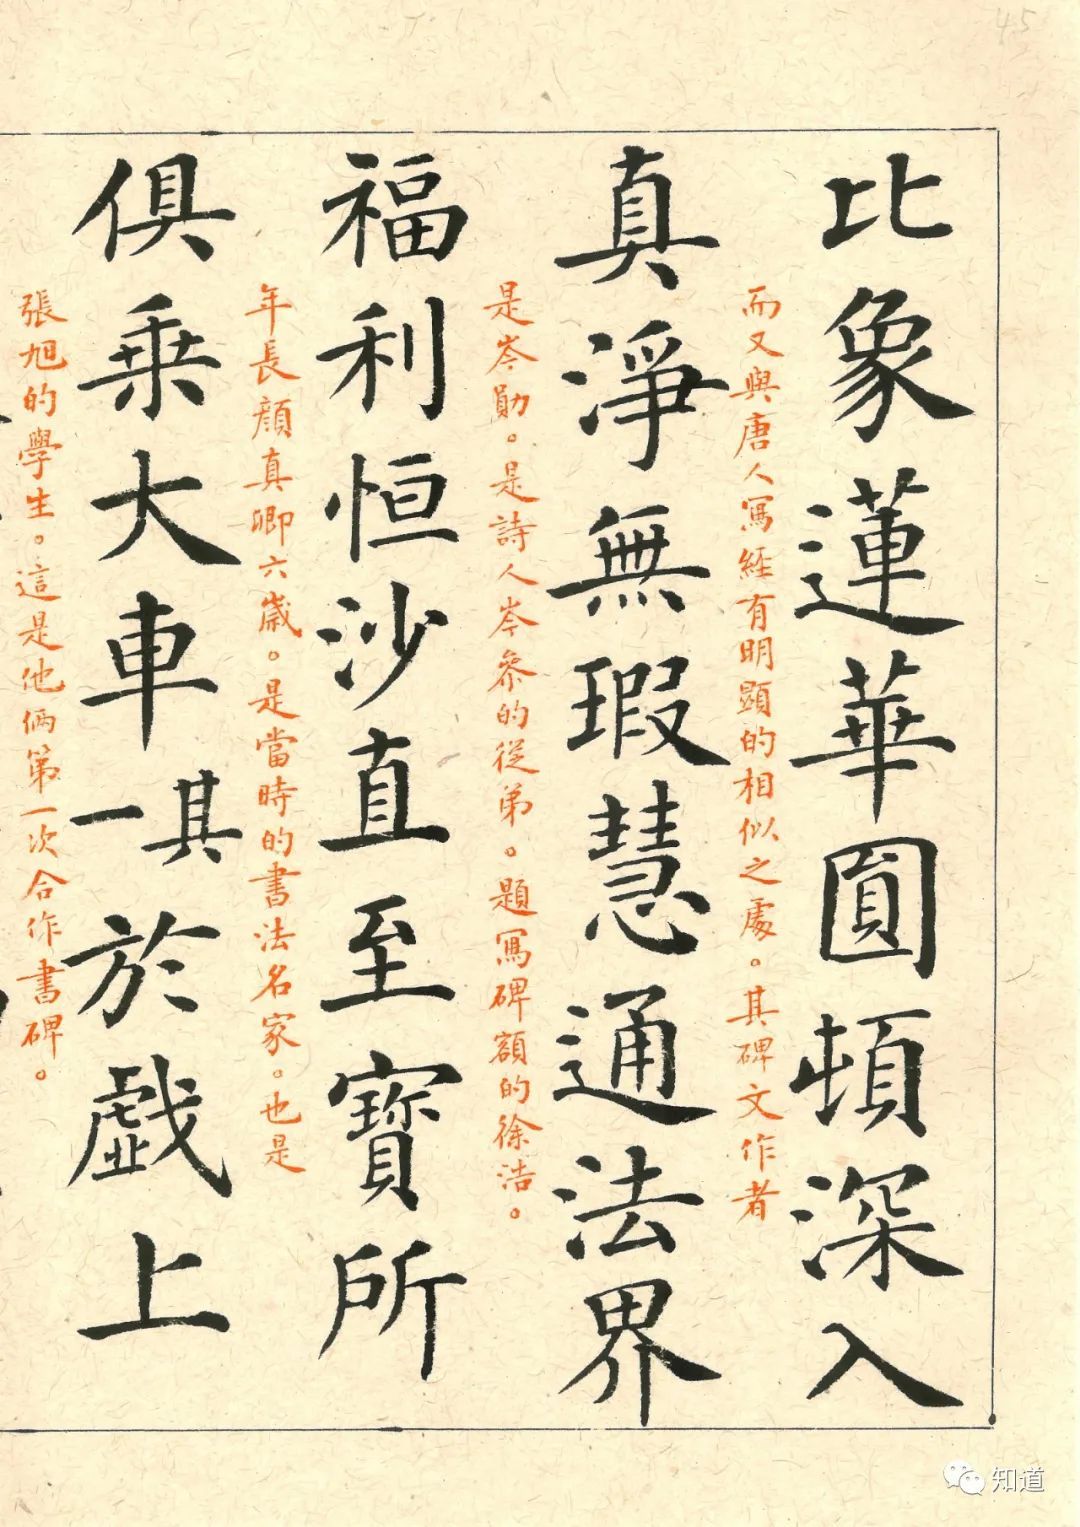 45
比象蓮華圓頓深入
而又與唐人寫經有明顯的相似之處。其碑文作者
真淨無瑕慧通法界
是岑勛。是詩人岑參的從弟。題寫碑額的徐浩。
福利恒沙直至寳所
年長顏真卿六歲。是當時的書法名家。也是
俱乗大車一其於戯上
張旭的學生。這是他倆第一次合作書碑。
知道